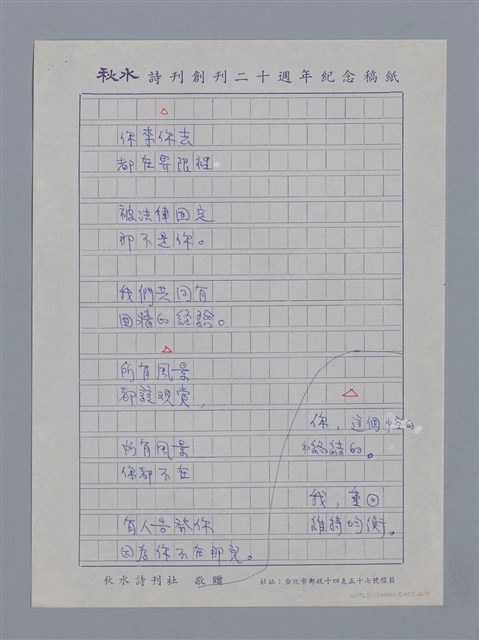 秋水 詩刊創刊二十週年紀念稿紙
你來你去
都在界限裡
被法律固定
那不是你。
我們共同有
圍牆的經驗。
所有風景
都該觀賞,
所有風景
你都不在
有人告發你
因為你不在那兒。
你,這個
終結的。
我,重回
維持均衡。
秋水詩刊社 敬贈
社址:台北市郵政十四支五十七號信箱